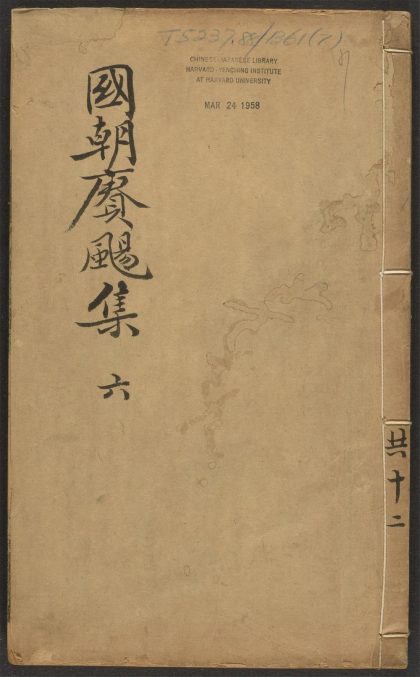 T5237.88/1361(7)
CHINESE-JAPANESE LIBRARY
HARVARD-YENCHING INSTITUTE
AT HARVARD UNIVERSITY
MAR 24 1958
國朝賡颺集 六
共十二